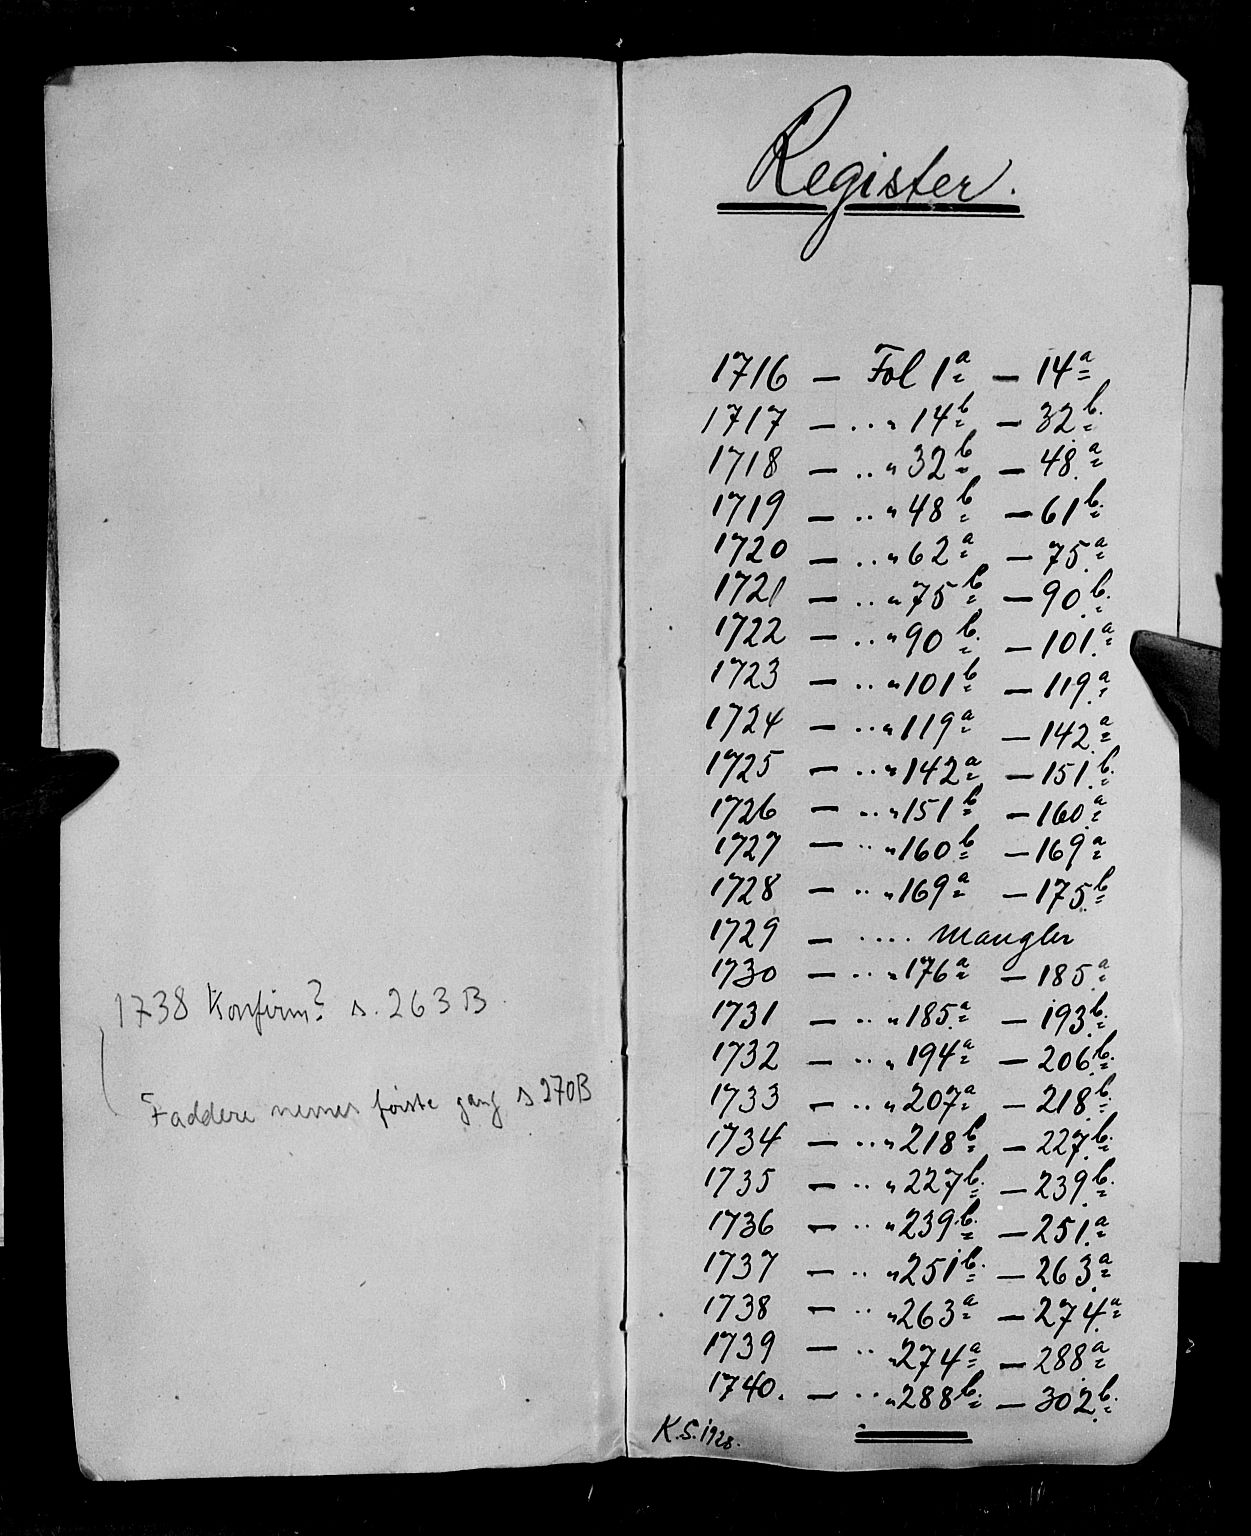 1738 Konfirm? s. 263 B
Faddere nevnes første gang s 270B
Register.
1716 — Fol 1a — 14a
1717 — .. „ 14b — 32b.
1718 — .. „ 32b — 48.a
1719 — .. „ 48b — 61b.
1720 — .. „ 62a — 75.a
1721 — .. „ 75b — 90.b.
1722 — .. „ 90b. — 101.a
1723 — .. „ 101b — 119.a
1724 — .. „ 119a — 142.a
1725 — .. „ 142a — 151.b.
1726 — .. „ 151b — 160.a
1727 — .. „ 160b — 169a
1728 — .. „ 169a — 175.b
1729 — .... Mangler
1730 — .. „ 176a — 185.a
1731 — .. „ 185.a — 193.b.
1732 — .. „ 194a — 206.b.
1733 — .. „ 207a — 218.b.
1734 — .. „ 218b — 227.b.
1735 — .. „ 227b. — 239.b.
1736 — .. „ 239.b. — 251.a
1737 — .. „ 251b. — 263.a
1738 — .. „ 263a — 274.a
1739 — .. „ 274a — 288a
1740. — .. „ 288b. — 302.b.
K.S. 1928.